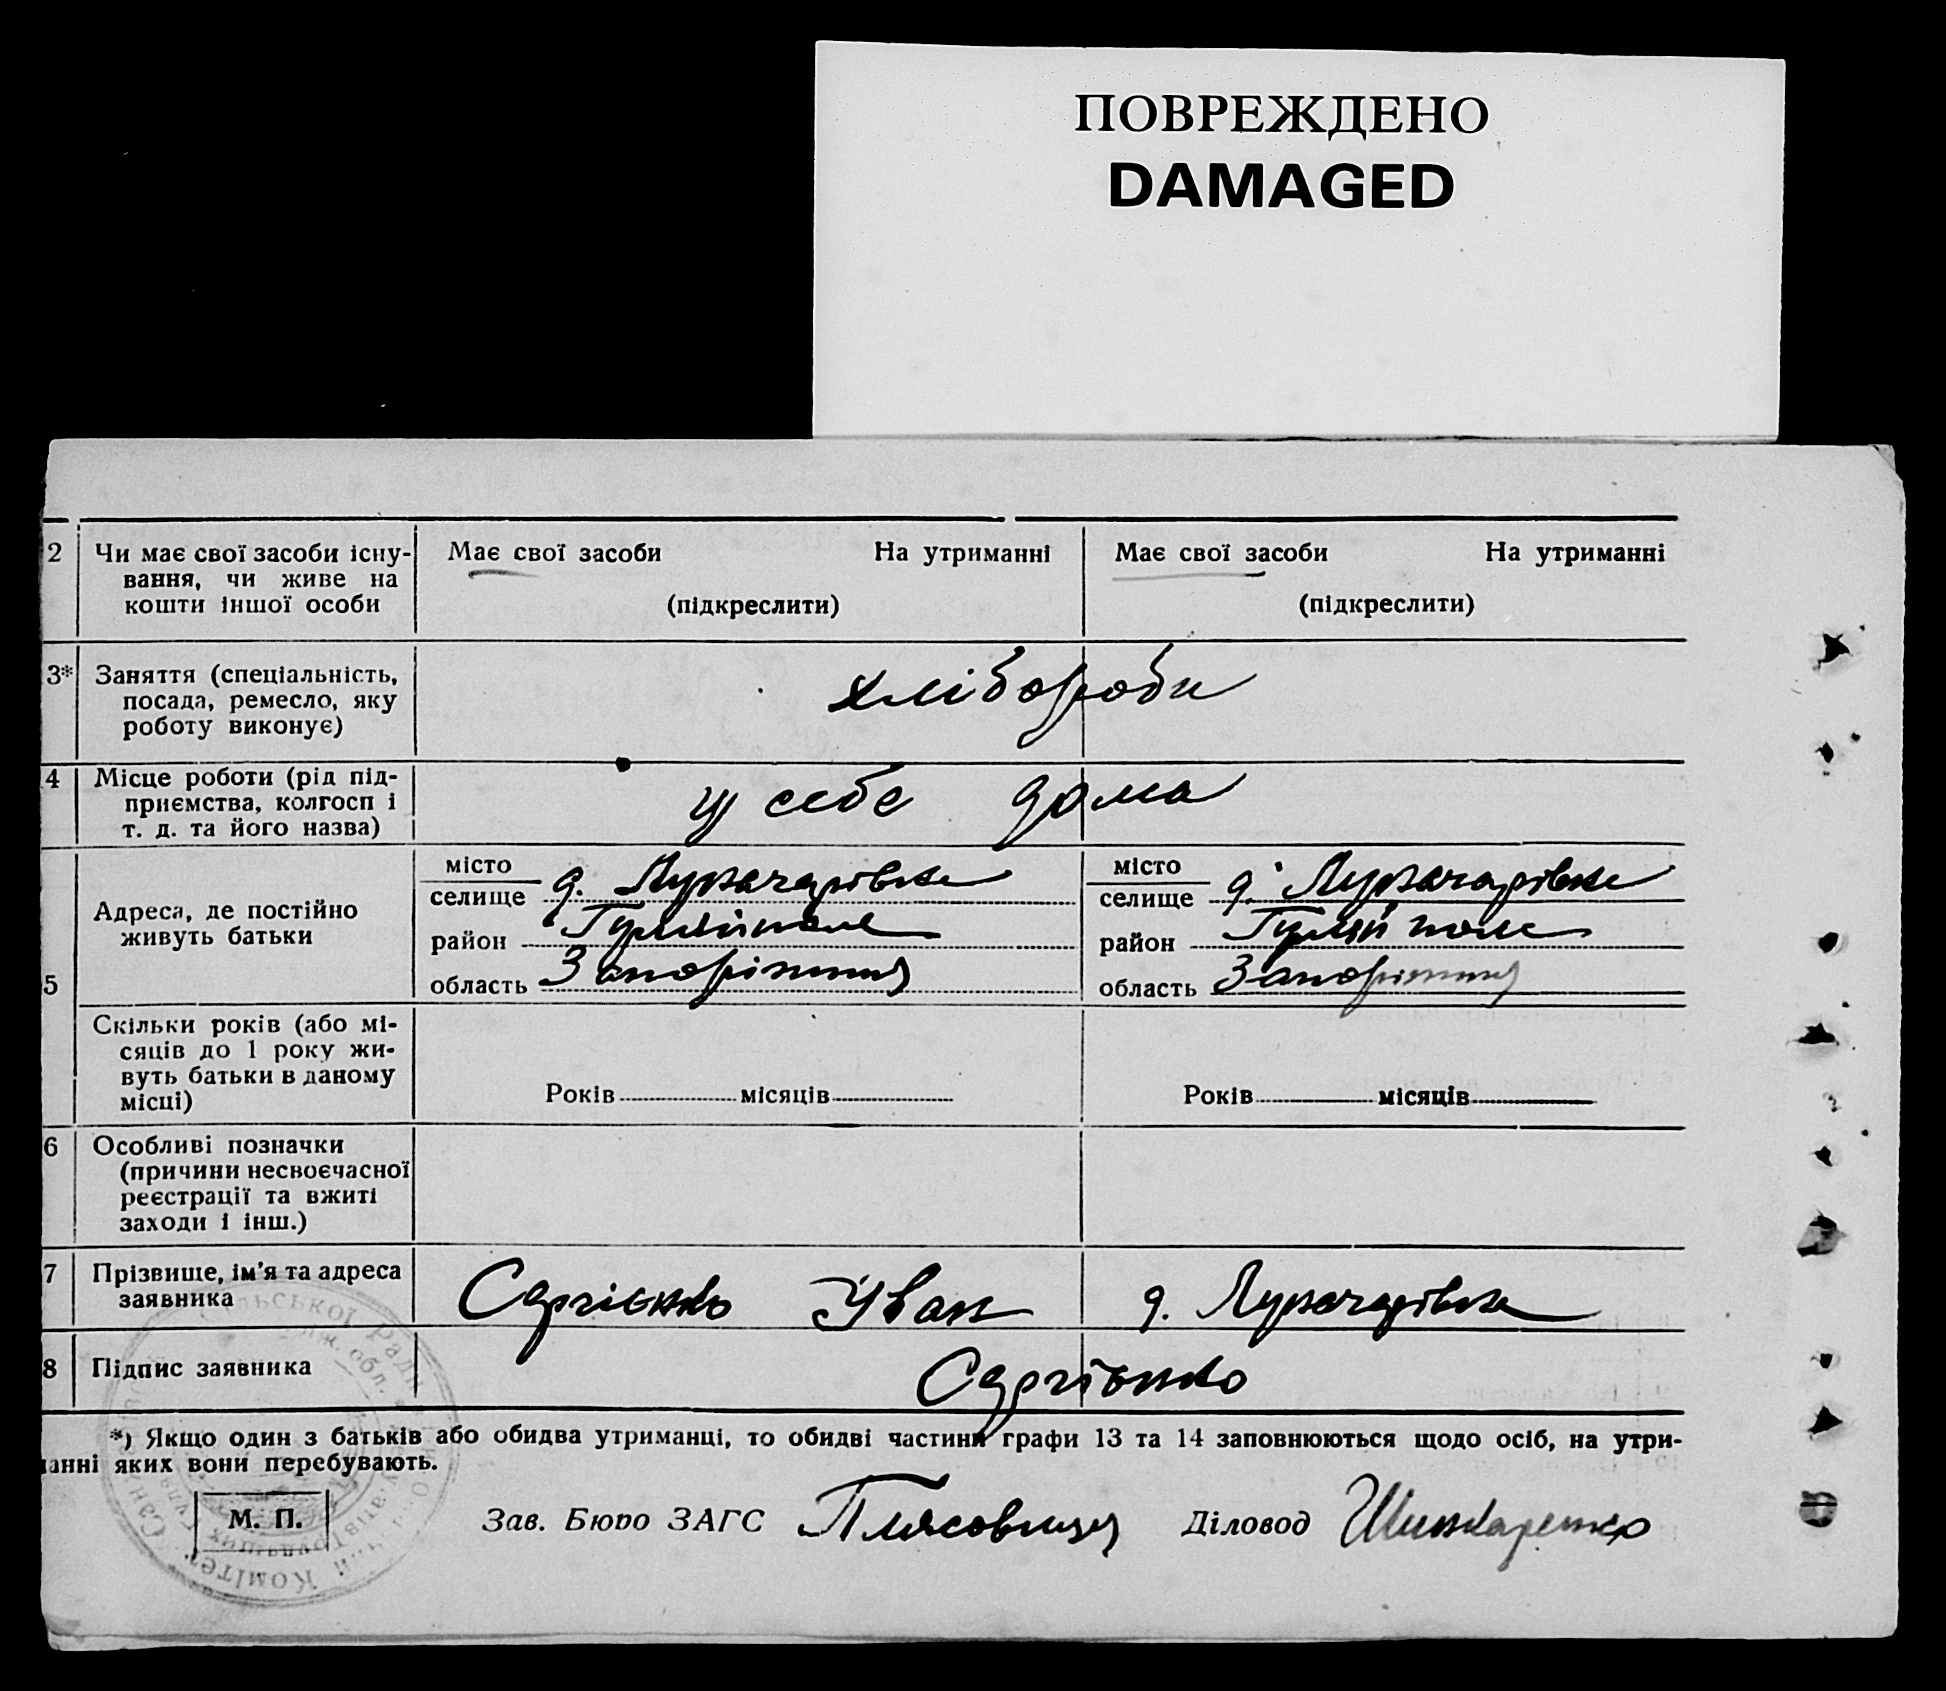 ПОВРЕЖДЕНО
DAMAGED
2 Чи має свої засоби існу- Має свої засоби На утриманні Має свої засоби На утриманні
вання, чи живе на
кошти іншої особи (підкреслити) (підкреслити)
3* Заняття (спеціальність, хлібороби
посада, ремесло, яку
роботу виконує)
4 Місце роботи (рід під- у себе дома
приємства, колгосп і
т. д. та його назва)
місто місто
селище д. Луначарівка селище д. Луначарівка
Адреса, де постійно
живуть батьки
район Гуляйполе район Гуляйполе
5 область Запоріжжя область Запоріжжя
Скільки років (або мі-
сяців до 1 року жи-
вуть батьки в даному
місці) Років місяців Років місяців
6 Особливі позначки
(причини несвоєчасної
реєстрації та вжиті
заходи і інш.)
7 Прізвище, ім'я та адреса Сергієнко Іван д. Луначарівка
заявника
8 Підпис заявника Сергієнко
*) Якщо один з батьків або обидва утриманці, то обидві частини графи 13 та 14 заповнюються щодо осіб, на утри-
анні яких вони перебувають.
М. П. Зав. Бюро ЗАГС Діловод Шинкаренко